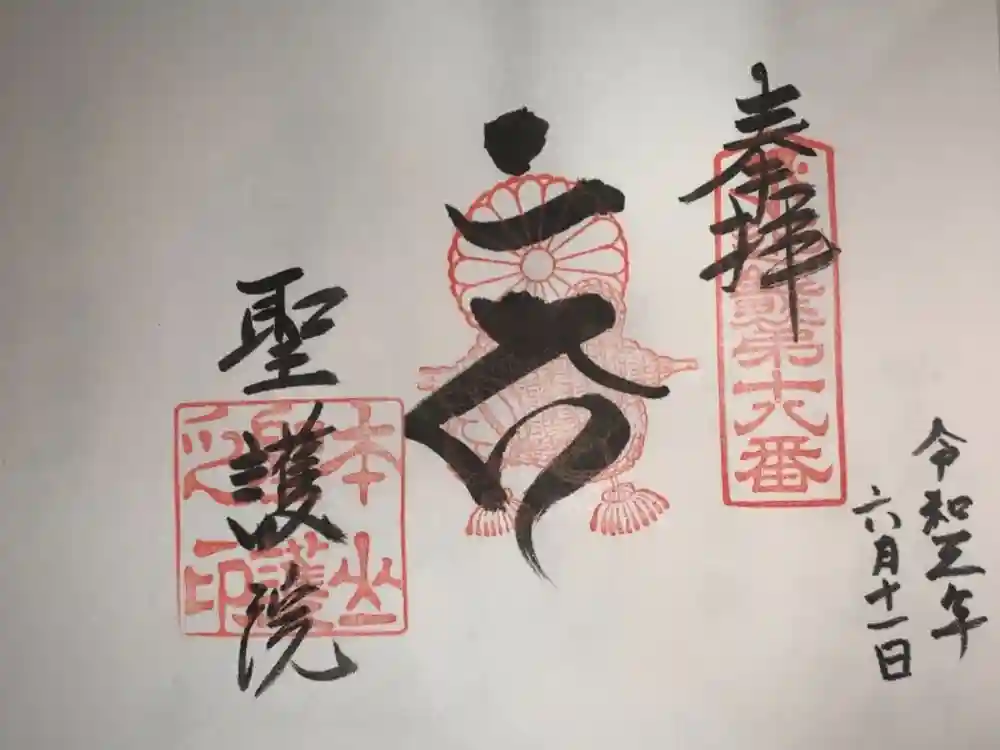 令和三年
六月十一日
奉拝
第十八番
聖護院
本山
聖護
之印